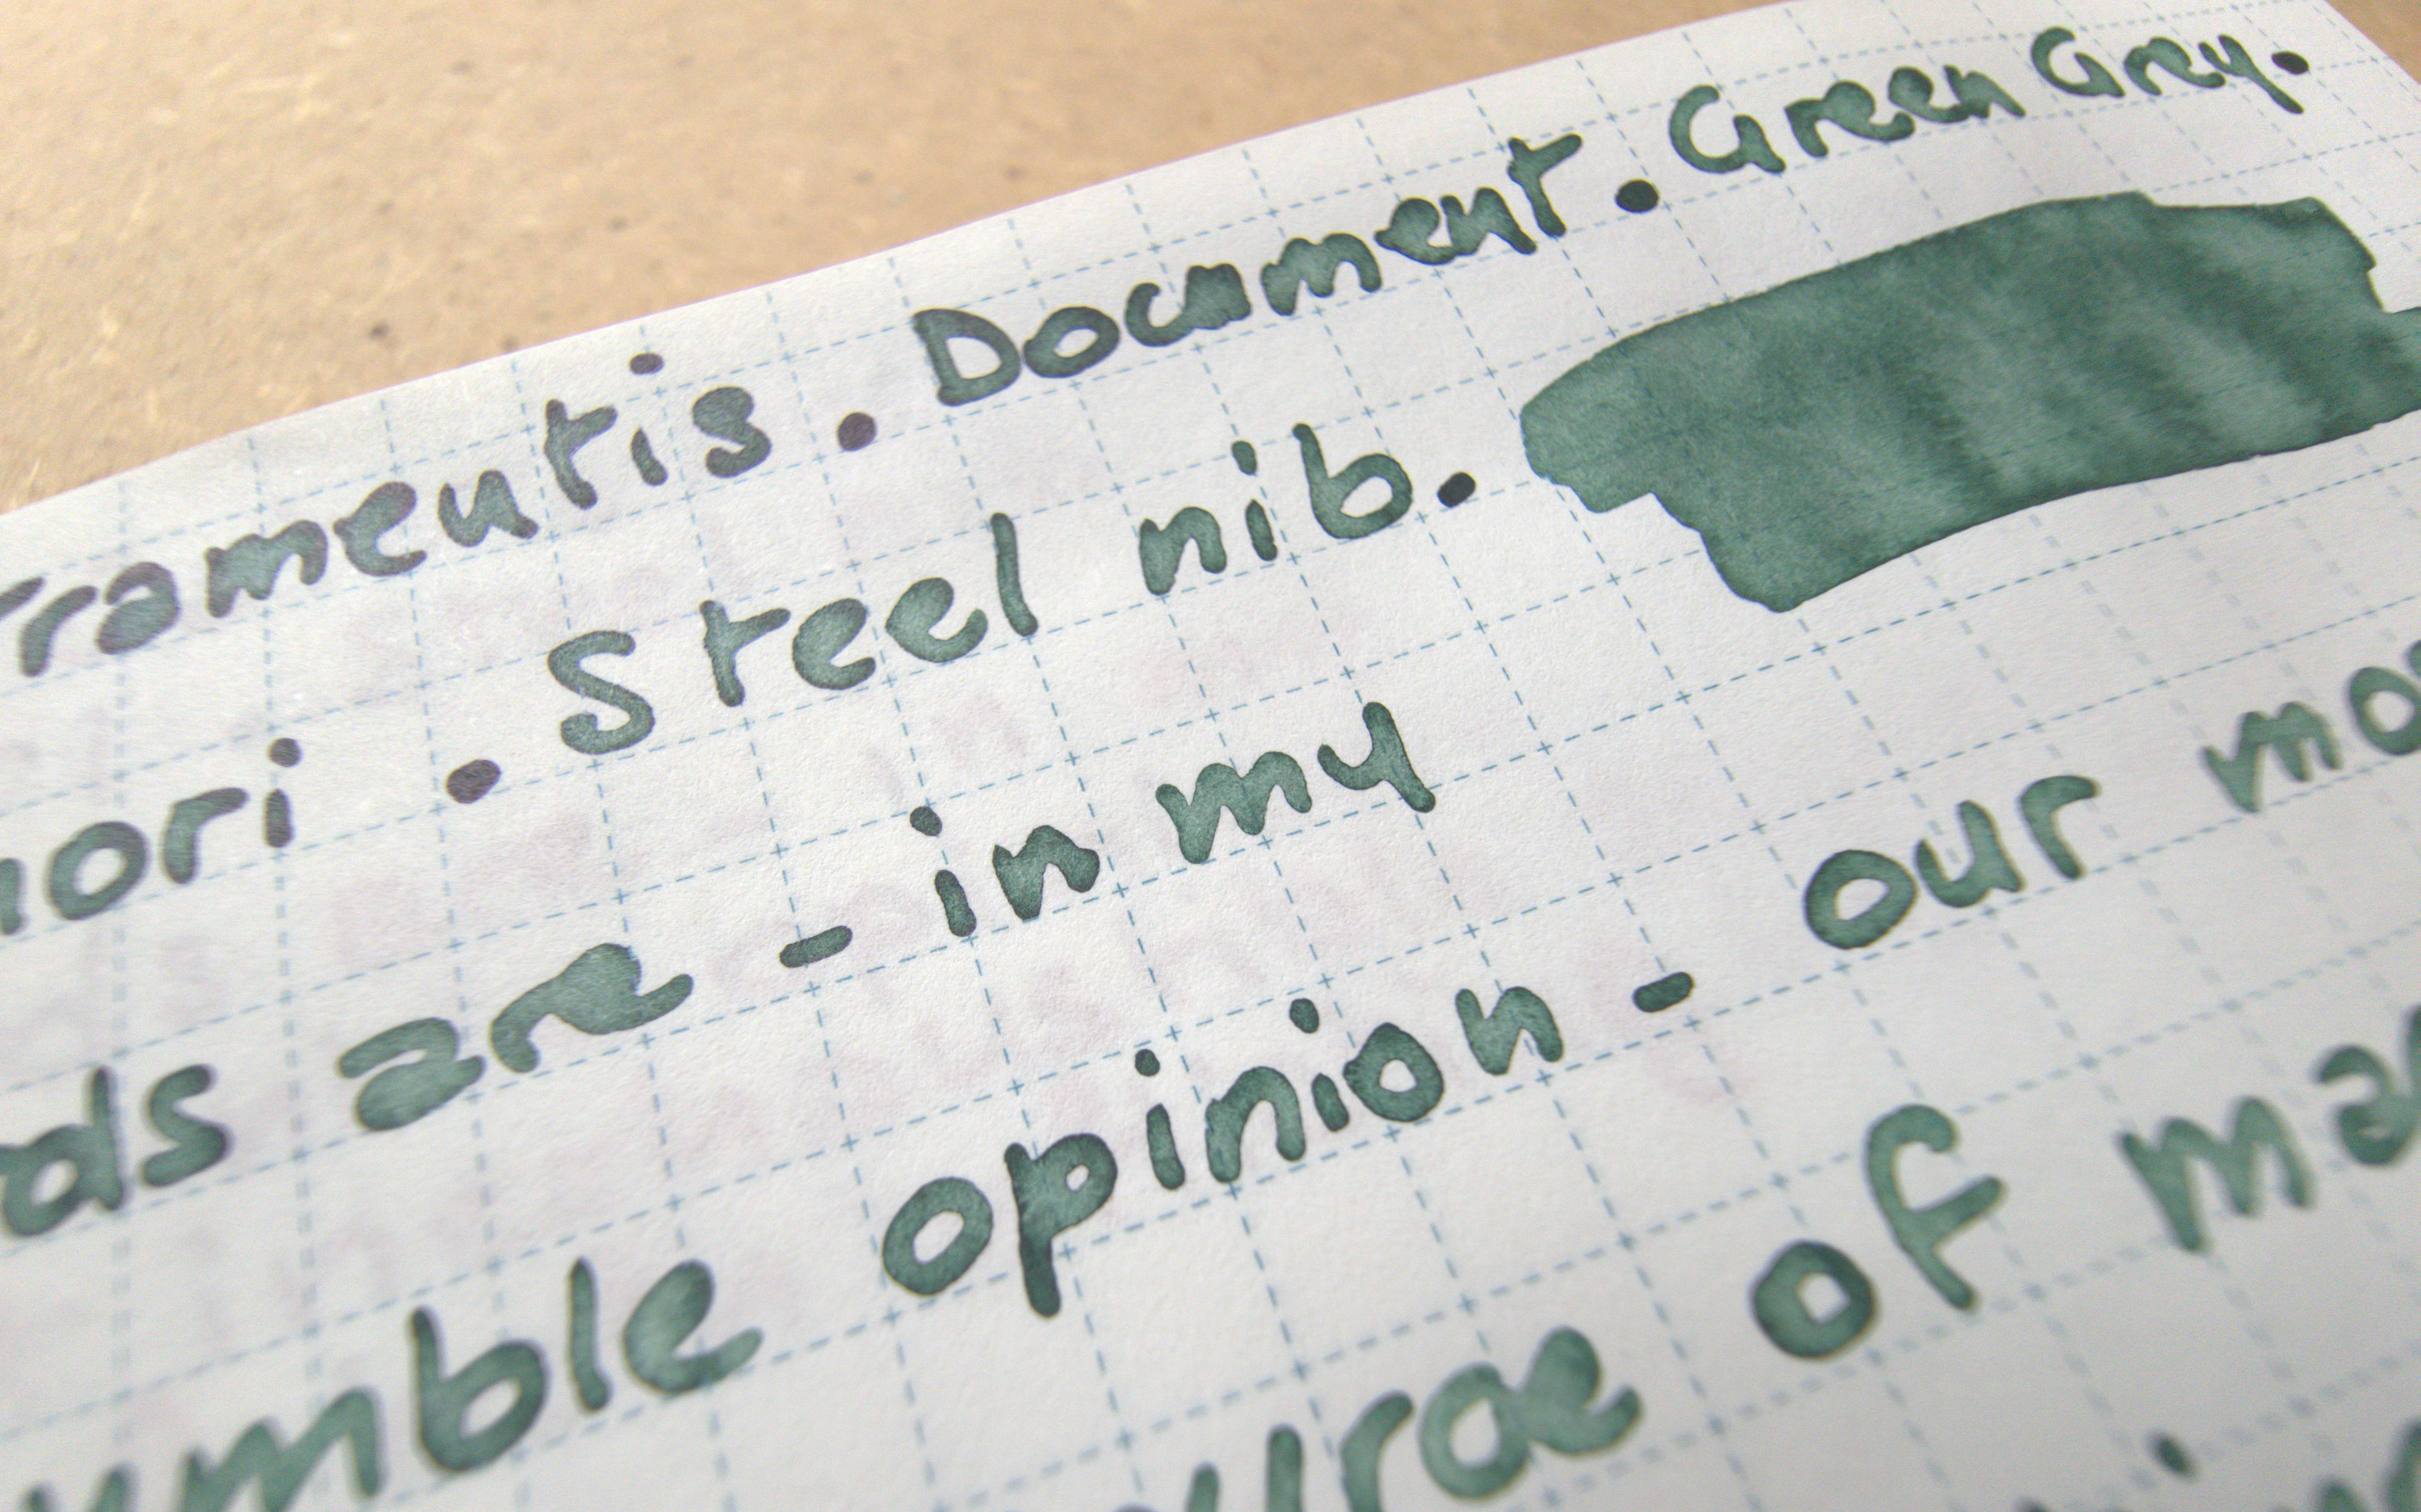 ramentis. Document. Green Grey.
ori . Steel nib.
ds are - in my
umble opinion - our mo
urce of ma